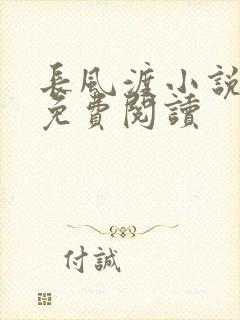 長風渡小說
免費閱讀
付誠